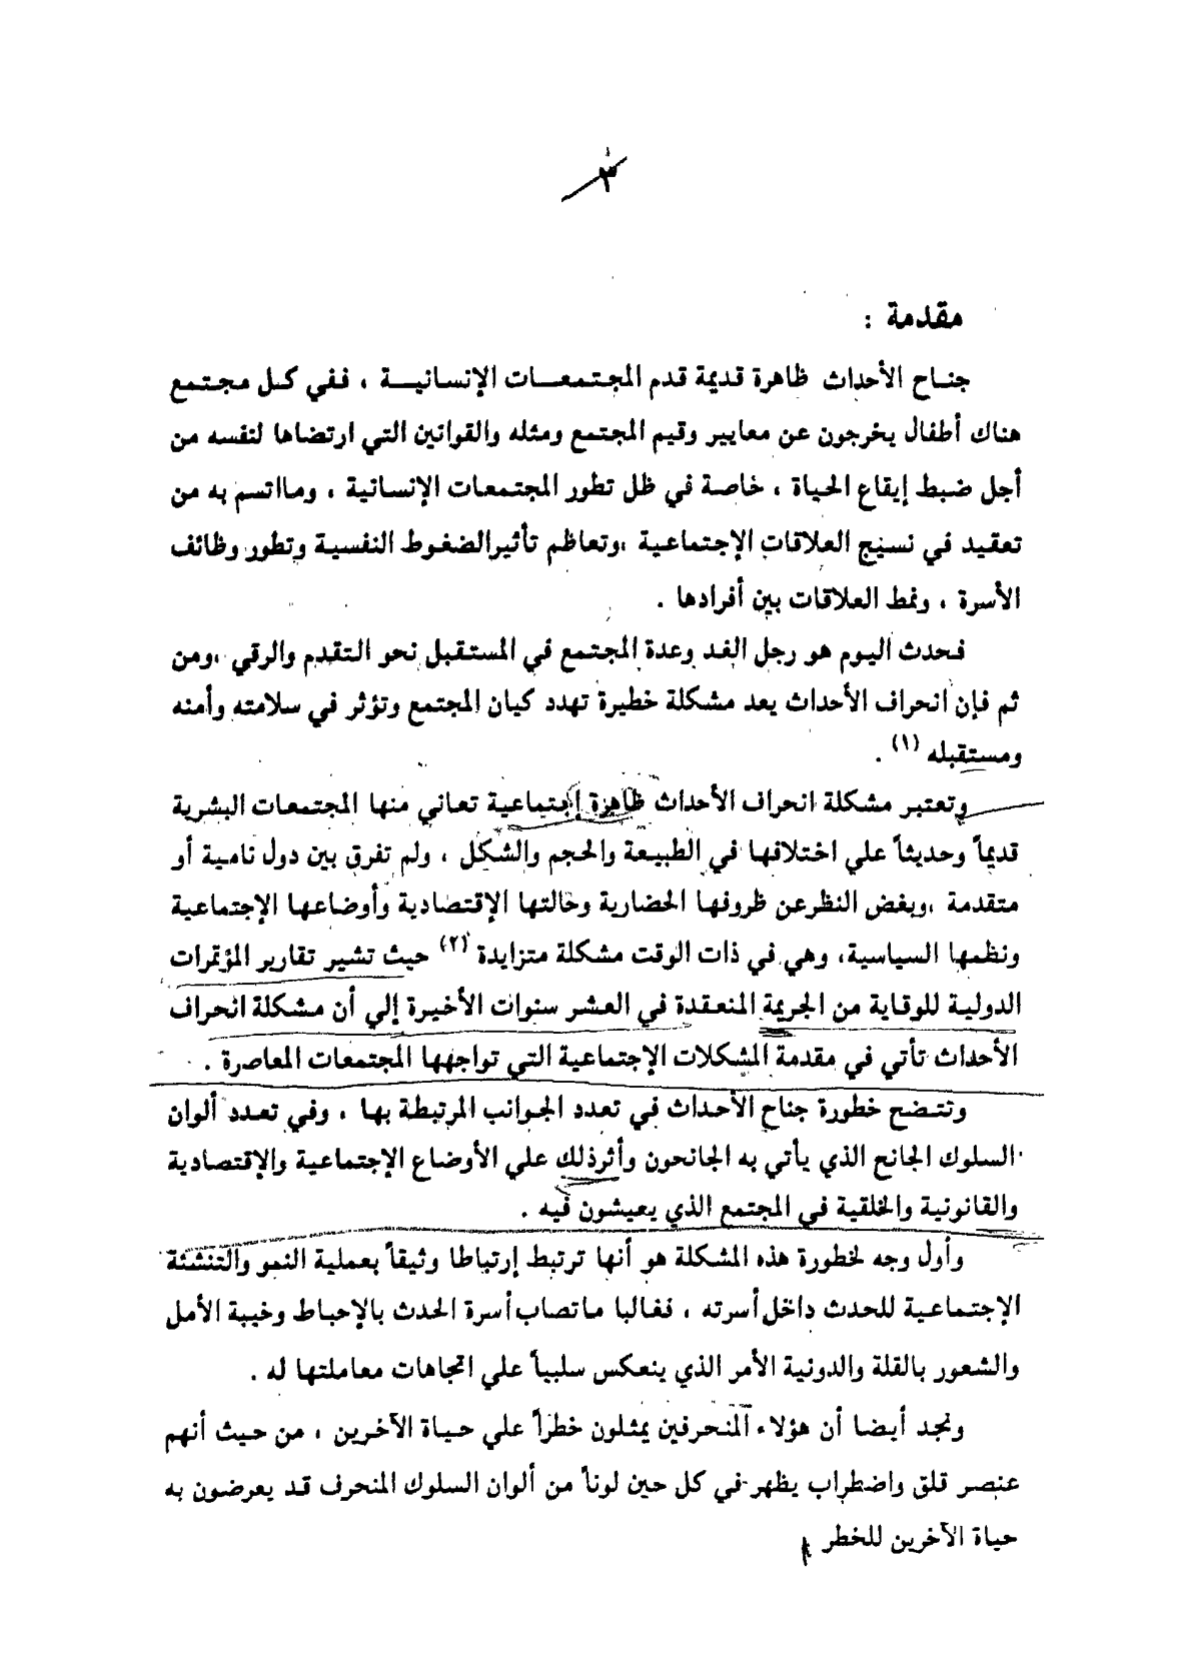 ٣
مقدمة :
جناح الأحداث ظاهرة قديمة قدم المجتمعات الإنسانية ، ففي كل مجتمع
هناك أطفال يخرجون عن معايير وقيم المجتمع ومثله والقوانين التي ارتضاها لنفسه من
أجل ضبط إيقاع الحياة ، خاصة في ظل تطور المجتمعات الإنسانية ، ومااتسم به من
تعقيد في نسيج العلاقات الإجتماعية ،وتعاظم تأثيرالضغوط النفسية وتطور وظائف
الأسرة ، ونمط العلاقات بين أفرادها .
فحدث اليوم هو رجل الغد وعدة المجتمع في المستقبل نحو التقدم والرقي ،ومن
ثم فإن انحراف الأحداث يعد مشكلة خطيرة تهدد كيان المجتمع وتؤثر في سلامته وأمنه
ومستقبله (١) .
وتعتبر مشكلة انحراف الأحداث ظاهرة إجتماعية تعاني منها المجتمعات البشرية
قديماً وحديثاً علي اختلافها في الطبيعة والحجم والشكل ، ولم تفرق بين دول نامية أو
متقدمة ،وبغض النظرعن ظروفها الحضارية وحالتها الإقتصادية وأوضاعها الإجتماعية
ونظمها السياسية، وهي في ذات الوقت مشكلة متزايدة (٢) حيث تشير تقارير المؤتمرات
الدولية للوقاية من الجريمة المنعقدة في العشر سنوات الأخيرة إلي أن مشكلة انحراف
الأحداث تأتي في مقدمة المشكلات الإجتماعية التي تواجهها المجتمعات المعاصرة .
وتتضح خطورة جناح الأحداث في تعدد الجوانب المرتبطة بها ، وفي تعدد ألوان
السلوك الجانح الذي يأتي به الجانحون وأثرذلك علي الأوضاع الإجتماعية والإقتصادية
والقانونية والخلقية في المجتمع الذي يعيشون فيه .
وأول وجه لخطورة هذه المشكلة هو أنها ترتبط إرتباطا وثيقاً بعملية النمو والتنشئة
الإجتماعية للحدث داخل أسرته ، فغالبا ماتصاب أسرة الحدث بالإحباط وخيبة الأمل
والشعور بالقلة والدونية الأمر الذي ينعكس سلبياً علي اتجاهات معاملتها له .
ونجد أيضا أن هؤلاء المنحرفين يمثلون خطراً علي حياة الآخرين ، من حيث أنهم
عنصر قلق واضطراب يظهر في كل حين لوناً من ألوان السلوك المنحرف قد يعرضون به
حياة الآخرين للخطر